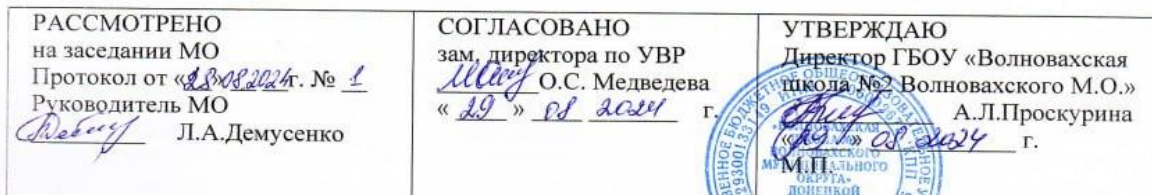 РАССМОТРЕНО
на заседании МО
Протокол от «28»08.2024г. № 1
Руководитель МО
Л.А.Демусенко
СОГЛАСОВАНО
зам. директора по УВР
О.С. Медведева
« 29 » 08 2024 г.
УТВЕРЖДАЮ
Директор ГБОУ «Волновахская
школа №2 Волновахского М.О.»
А.Л.Проскурина
«29» 08 2024 г.
М.П.
ВОЛНОВАХСКОГО
МУНИЦИПАЛЬНОГО
ОКРУГА»
ДОНЕЦКОЙ